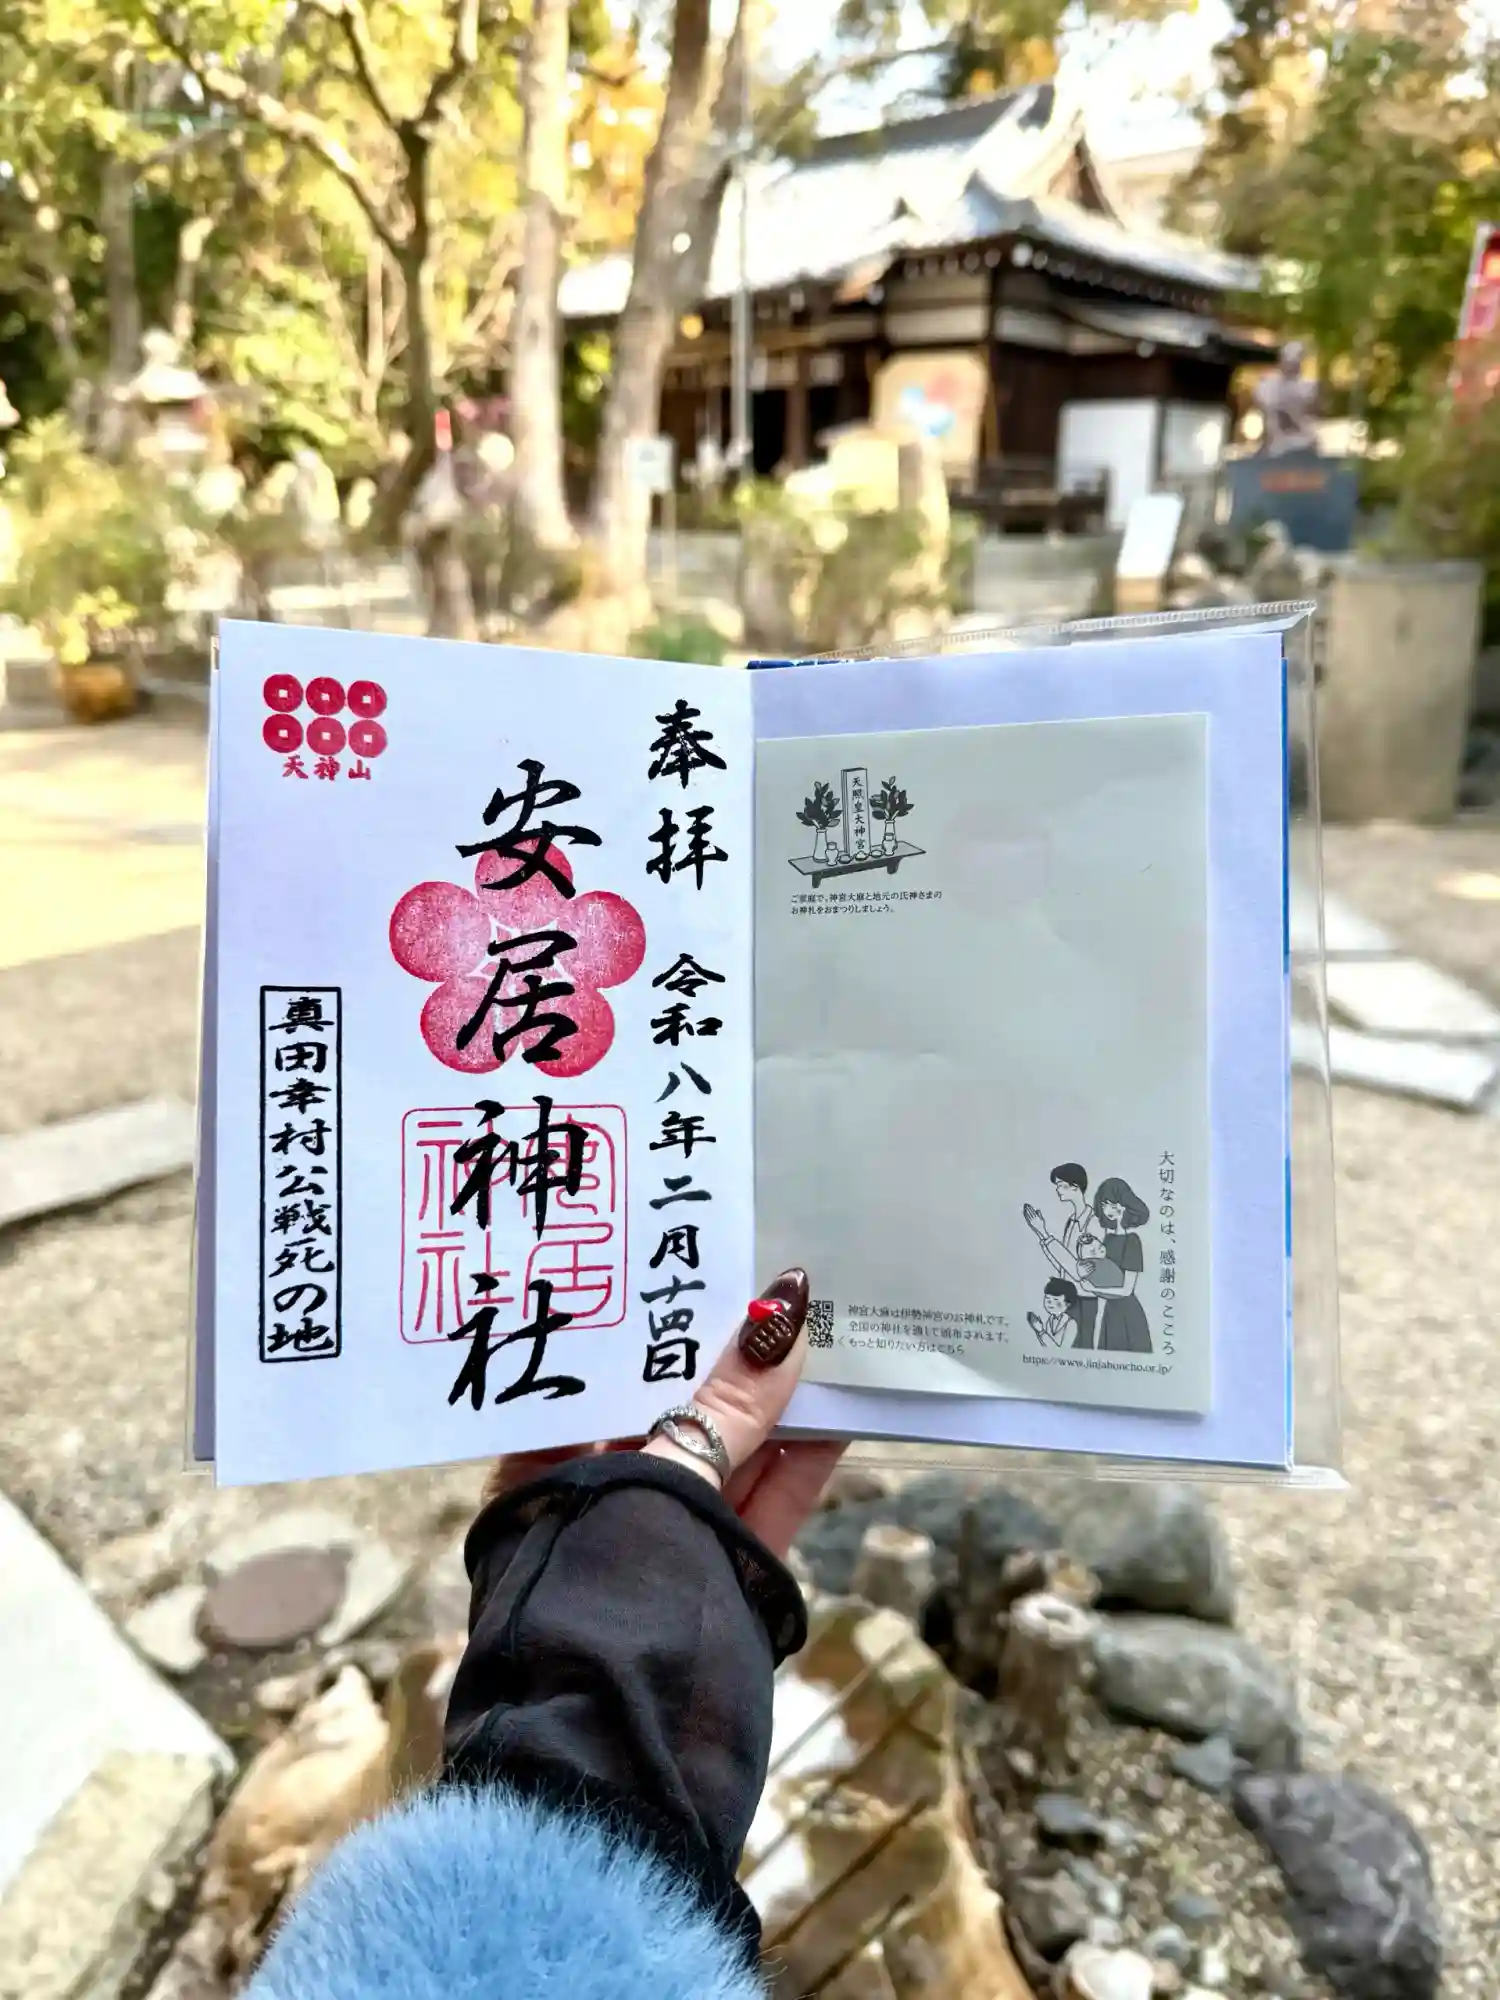 奉拝　令和八年二月十四日
安居神社
天神山
真田幸村公戦死の地
安居
神社
天照皇大神宮
ご家庭で、神宮大麻と地元の氏神さまの
お神札をおまつりしましょう。
大切なのは、感謝のこころ
神宮大麻は伊勢神宮のお神札です。
全国の神社を通して頒布されます。
くもっと知りたい方はこちら
https://www.jinjahoncho.or.jp/